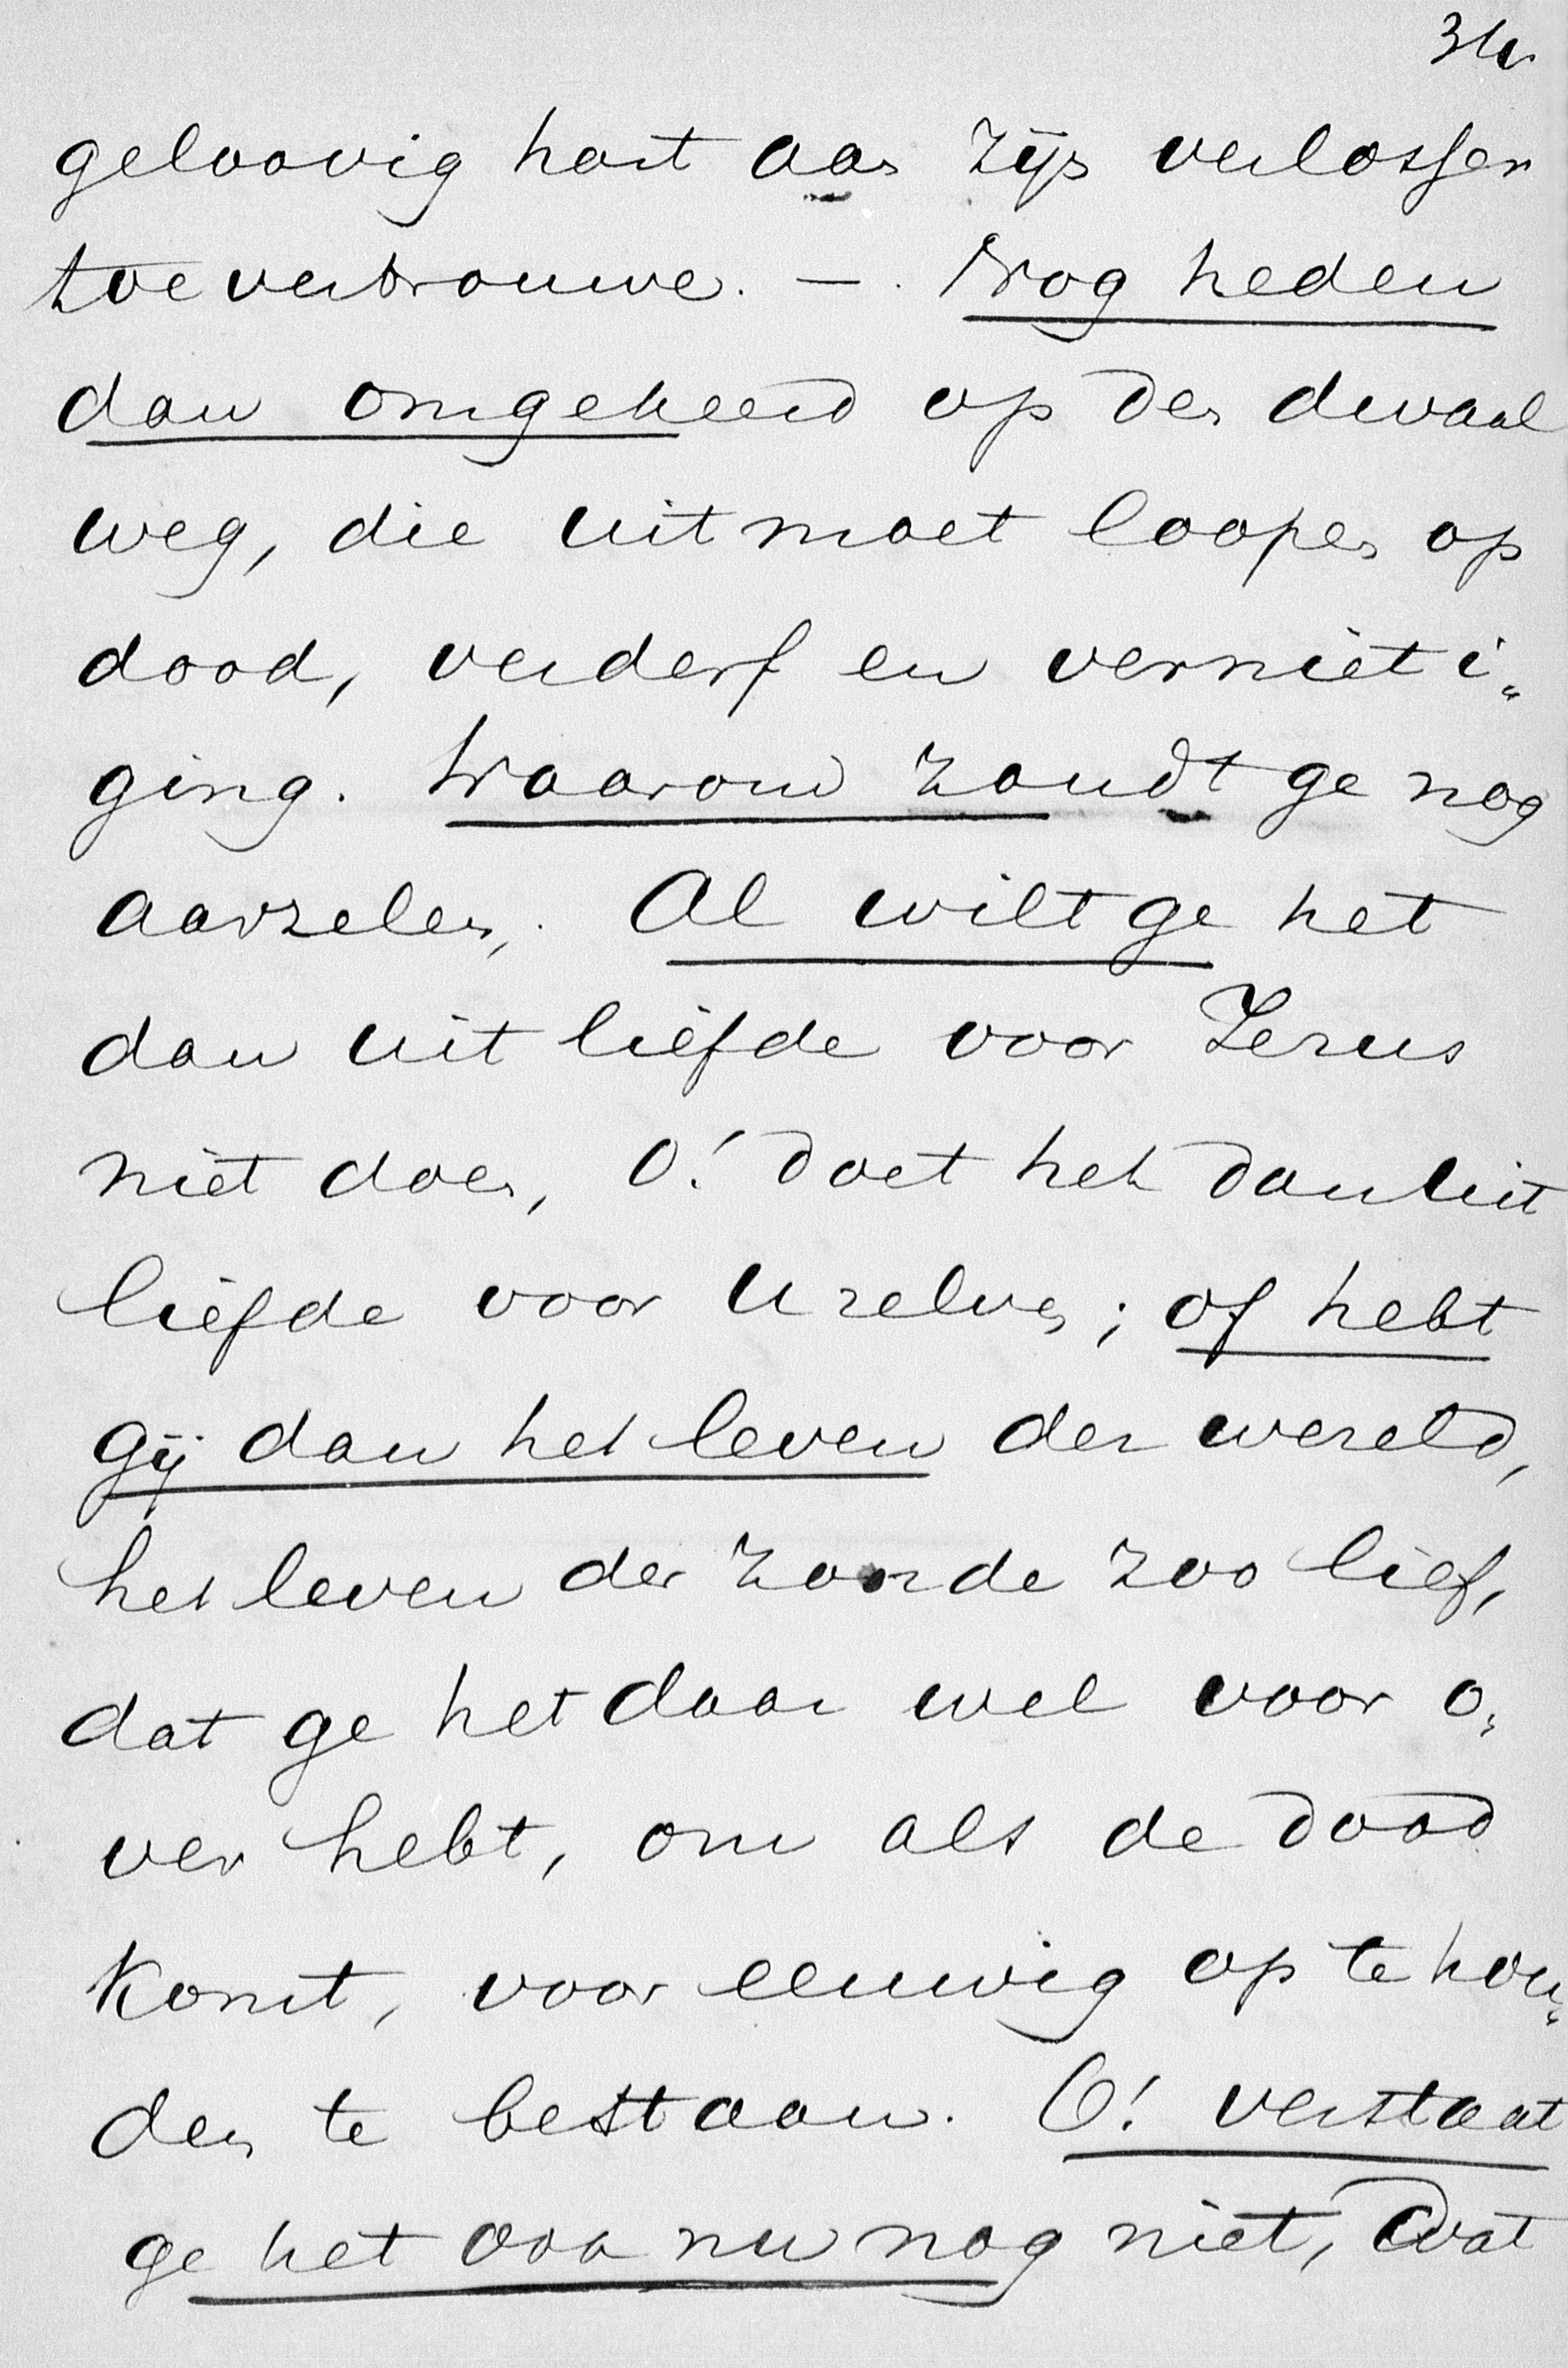 geloovig hart aan zijn verlosser
toevertrouwe. — Nog heden
dan omgekeerd op den dwaal
weg, die uit moet loopen op
dood, verderf en vernieti„
ging. Waarom zoudt ge nog
aarzelen,. Al wilt ge het
dan uit liefde voor Jezus
niet doen, O! doet het dan uit
liefde voor U zelven; of hebt
gij dan het leven der wereld,
het leven der zonde zoo lief,
dat ge het daar wel voor o„
ver hebt, om als de dood
komt, voor eeuwig op te hou„
den te bestaan. O! verstaat
ge het ook nu nog niet, wat